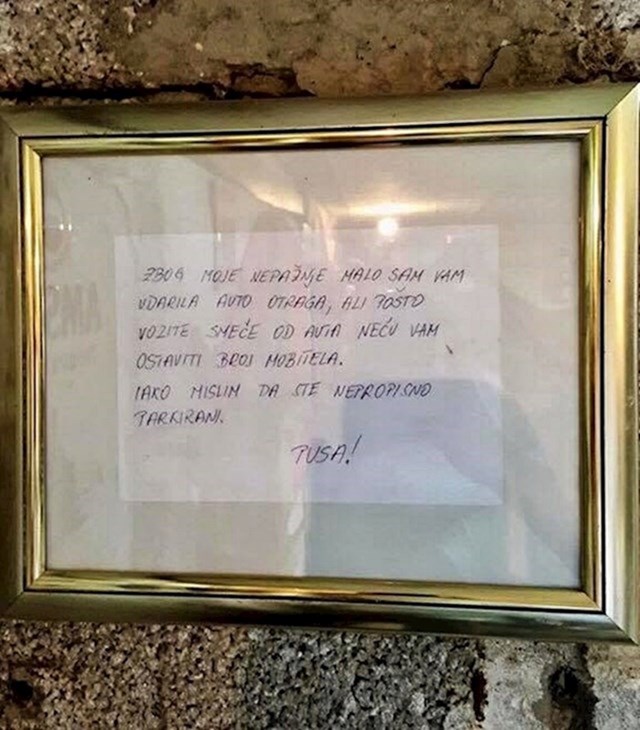 ZBOG MOJE NEPAŽNJE MALO SAM VAM
UDARILA AUTO OTRAGA, ALI POŠTO
VOZITE SMEĆE OD AUTA NEĆU VAM
OSTAVITI BROJ MOBITELA.
IAKO MISLIM DA STE NEPROPISNO
PARKIRANI.
PUSA!